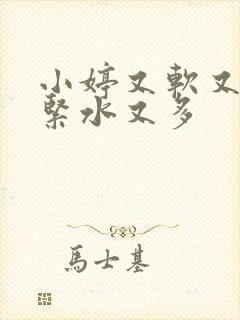 小婷又軟又
緊水又多
馬士基